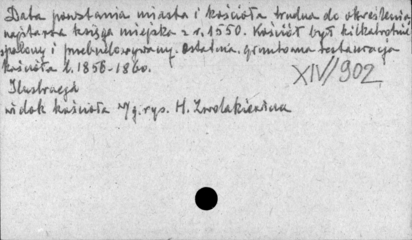 Data powstania miasta i kościoła trudna do określenia
najstarsza księga miejska z r. 1550. Kościół był kilkakrotnie
spalony i przebudowywany. Ostatnia gruntowna restauracja
kościoła l. 1856-1860.
XIV/902
Ilustracja
widok kościoła w/g. rys. H. Zwolakiewicza